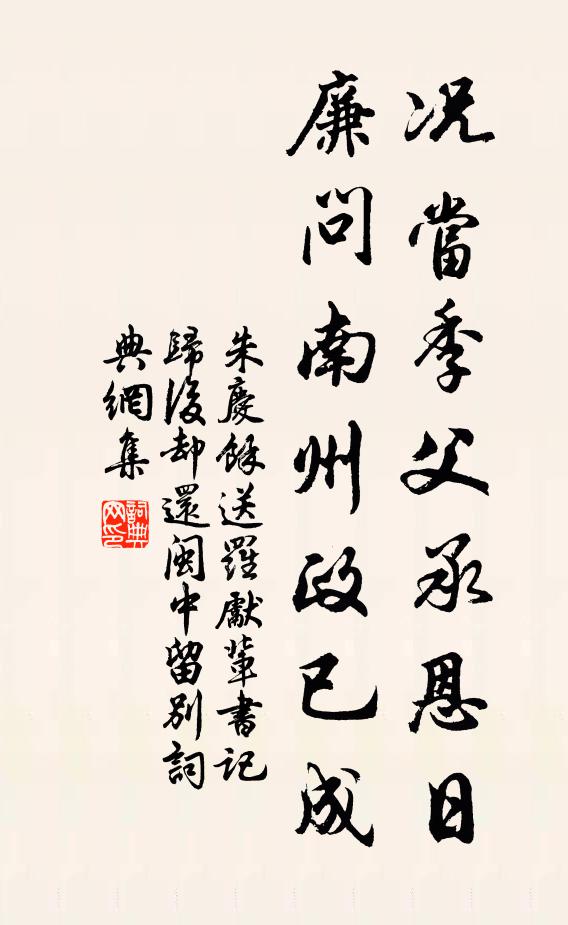 况當季父承恩日
廉問南州政已成
朱慶餘送羅獻輩書記
歸後却還閩中留別詞
典網集
詞典網印